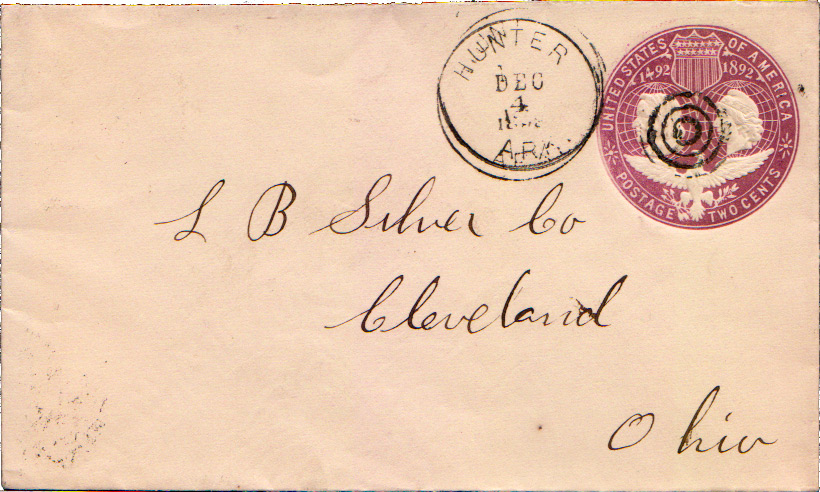 HUNTER
DEC
4
ARK.
UNITED STATES OF AMERICA
1492 1892
POSTAGE TWO CENTS
L B Silver Co
Cleveland
Ohio